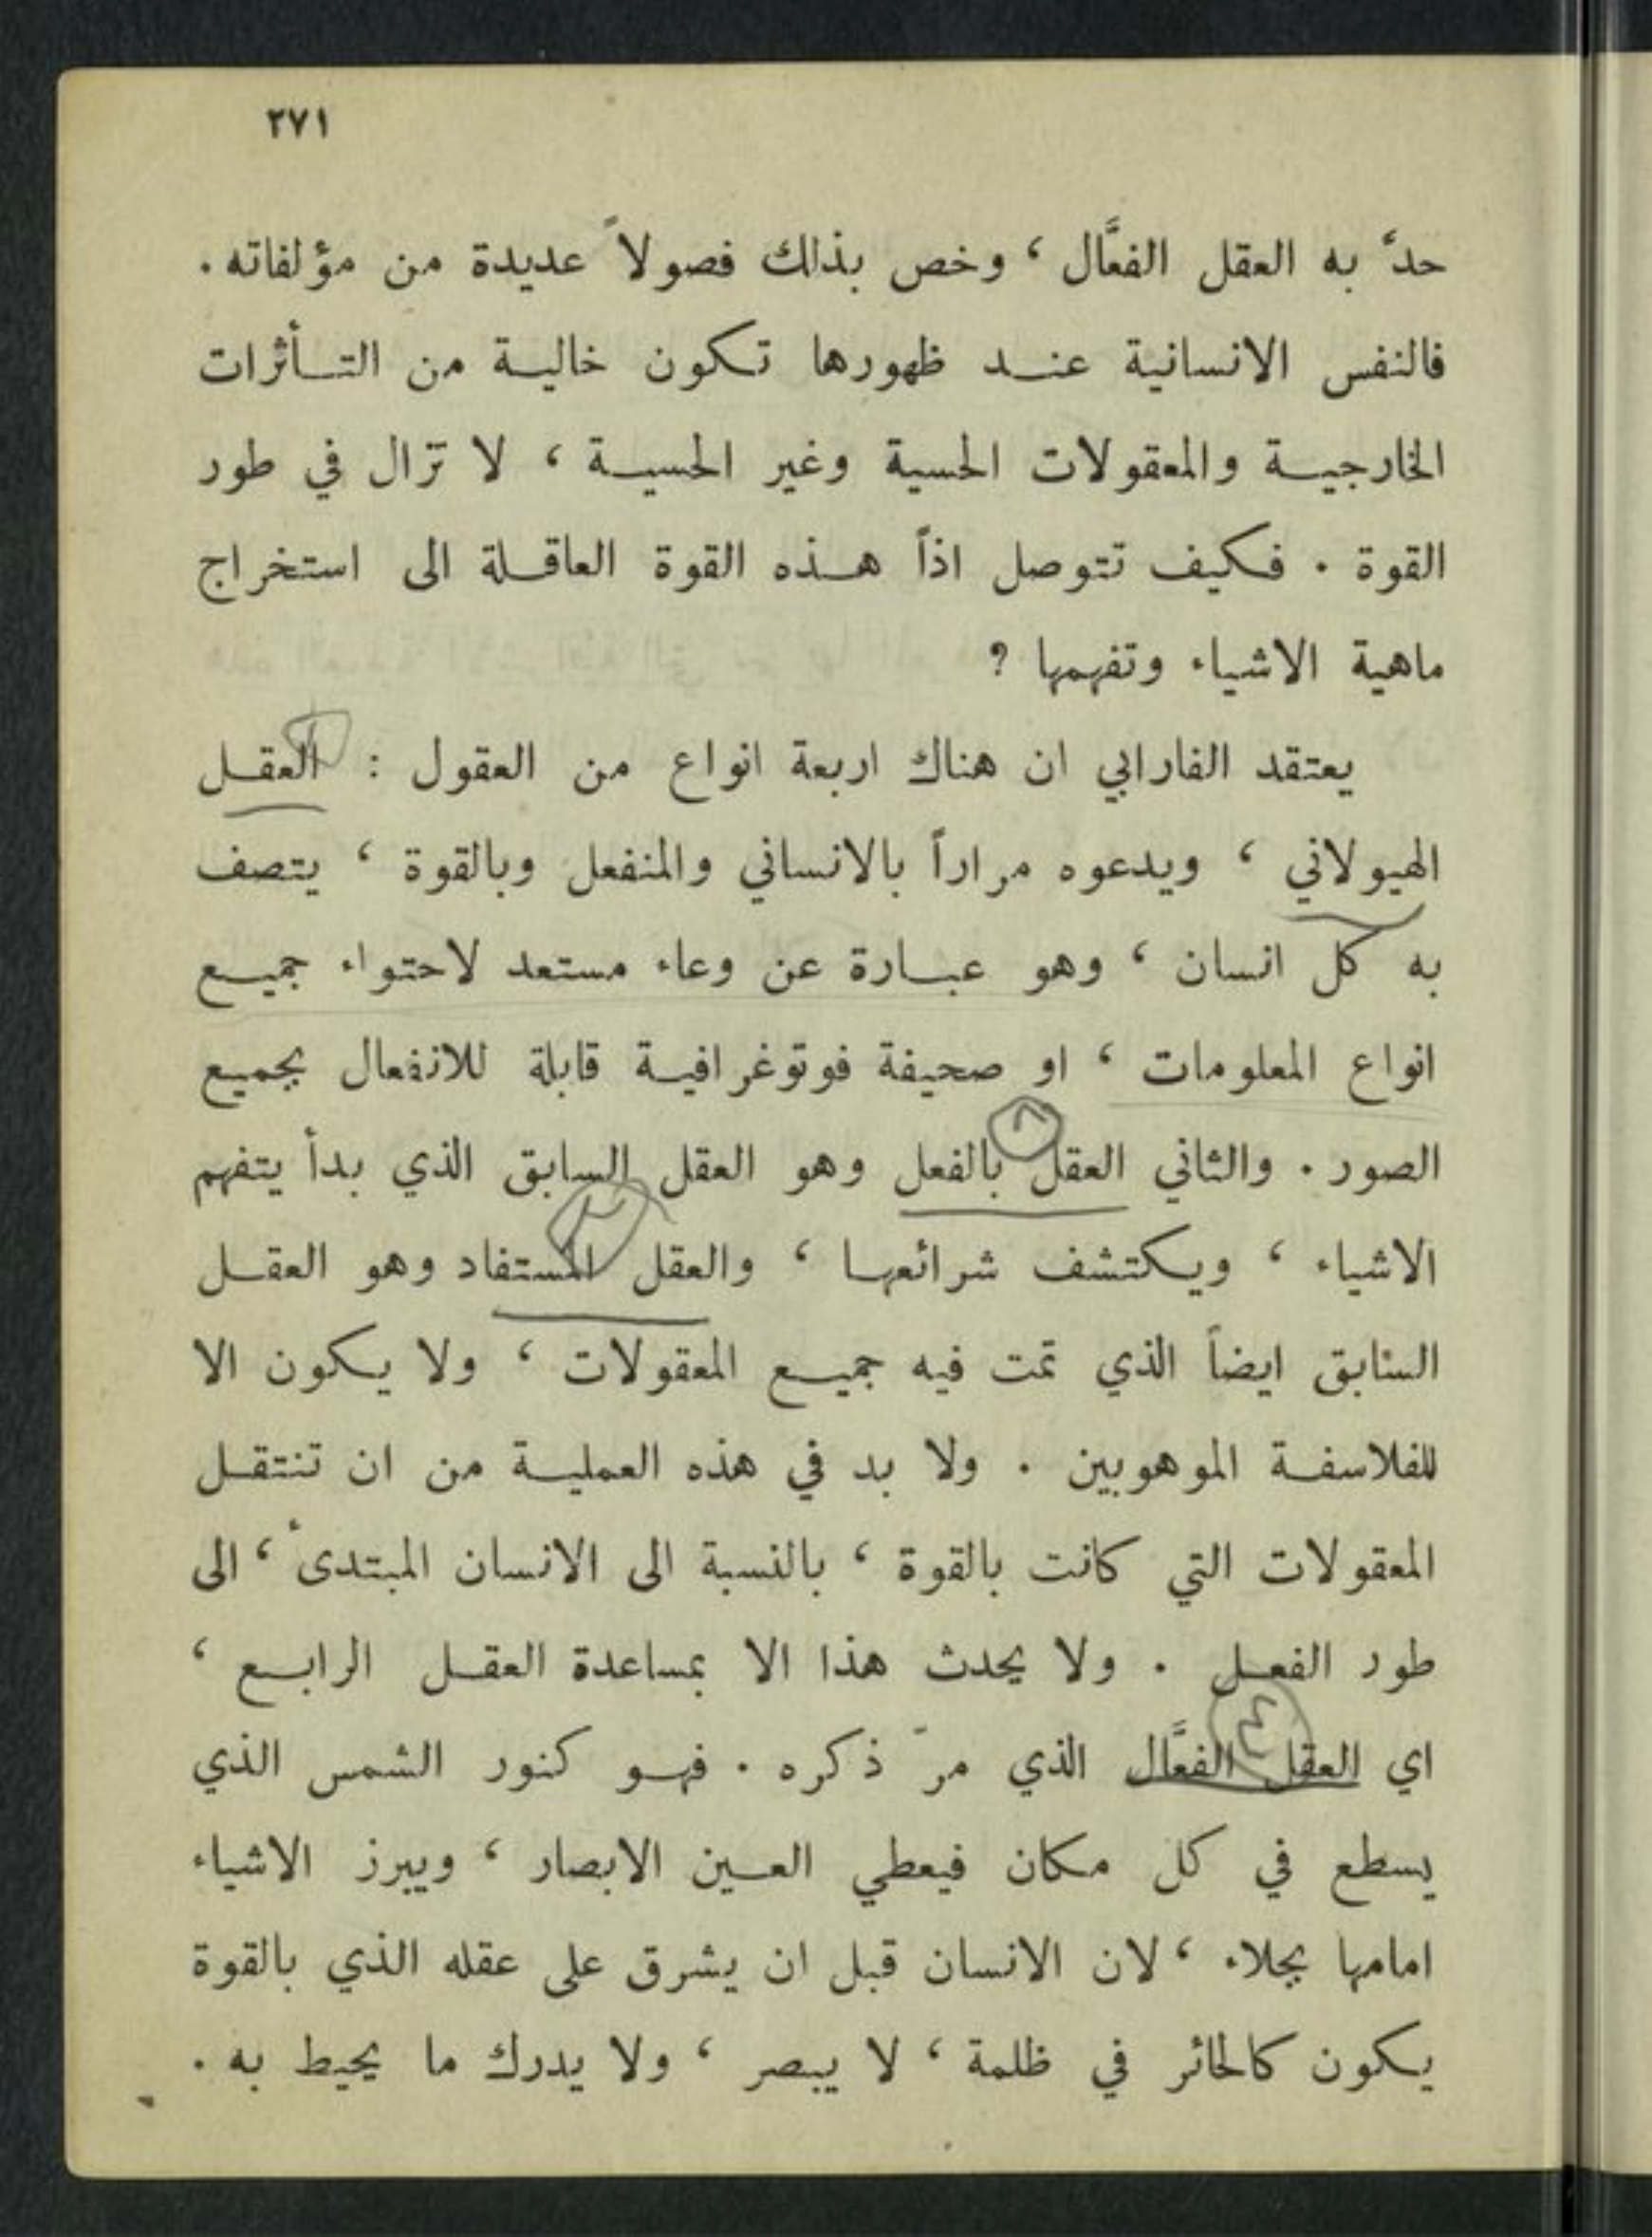 ٢٧١
حدَّ به العقل الفعَّال ، وخص بذلك فصولاً عديدة من مؤلفاته .
فالنفس الانسانية عند ظهورها تكون خالية من التأثرات
الخارجية والمعقولات الحسية وغير الحسية ، لا تزال في طور
القوة . فكيف تتوصل اذاً هذه القوة العاقلة الى استخراج
ماهية الاشياء وتفهمها ؟
يعتقد الفارابي ان هناك اربعة انواع من العقول : العقل
الهيولاني ، ويدعوه مراراً بالانساني والمنفعل وبالقوة ، يتصف
به كل انسان ، وهو عبارة عن وعاء مستعد لاحتواء جميع
انواع المعلومات ، او صحيفة فوتوغرافية قابلة للانفعال بجميع
الصور . والثاني العقل بالفعل وهو العقل السابق الذي بدأ يتفهم
الاشياء ، ويكتشف شرائعها ، والعقل المستفاد وهو العقل
السابق ايضاً الذي تمت فيه جميع المعقولات ، ولا يكون الا
للفلاسفة الموهوبين . ولا بد في هذه العملية من ان تنتقل
المعقولات التي كانت بالقوة ، بالنسبة الى الانسان المبتدىء ، الى
طور الفعل . ولا يحدث هذا الا بمساعدة العقل الرابع ،
اي العقل الفعَّال الذي مرّ ذكره . فهو كنور الشمس الذي
يسطع في كل مكان فيعطي العين الابصار ، ويبرز الاشياء
امامها بجلاء ، لان الانسان قبل ان يشرق على عقله الذي بالقوة
يكون كالحائر في ظلمة ، لا يبصر ، ولا يدرك ما يحيط به .